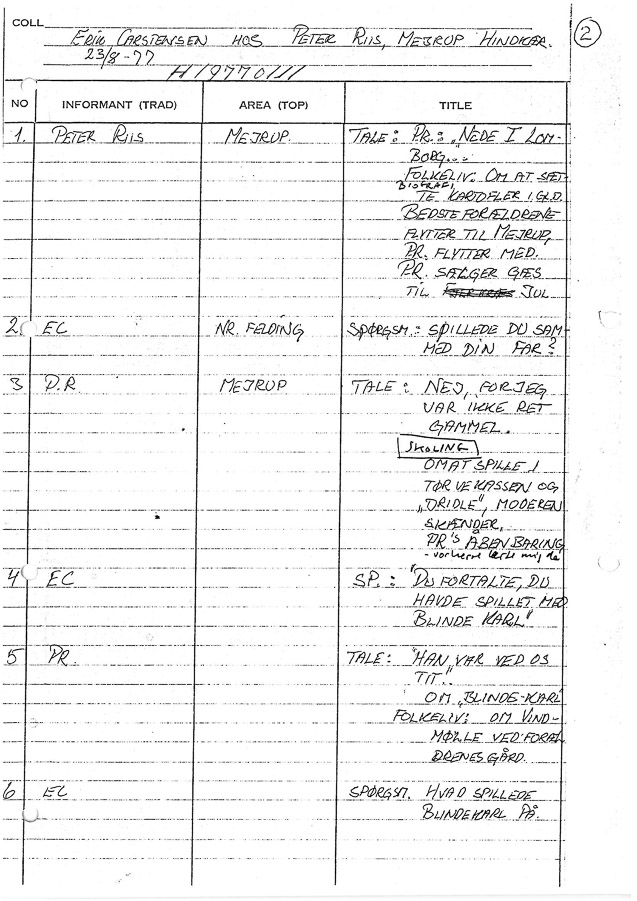 COLL
ERIK CARSTENSEN HOS PETER RIIS, MEJRUP HINDKÆR.
2
23/8-77
H19770111
NO INFORMANT (TRAD) AREA (TOP) TITLE
1. PETER RIIS MEJRUP. TALE: P.R.: „NEDE I LOM-
BORG...
FOLKELIV: OM AT SÆT-
BIOGRAFI,
TE KARTOFLER I GLD.
BEDSTEFORÆLDRENE
FLYTTER TIL MEJRUP,
P.R. FLYTTER MED.
P.R. SÆLGER GÆS
TIL JUL
2 EC NR. FELDING SPØRGSM.: SPILLEDE DU SAM-
MED DIN FAR?
3 P.R MEJRUP TALE: NEJ, FOR JEG
VAR IKKE RET
GAMMEL.
SKOLING
OM AT SPILLE I
TØRVEKASSEN OG
„DRIDLE", MODEREN
SKÆNDER,
PR'S ÅBENBARING
- vorherre lærte mig de
4 EC SP.: "DU FORTALTE, DU
HAVDE SPILLET MED
BLINDE KARL"
5 PR. TALE: "HAN VAR VED OS
TIT."
OM „BLINDE-KARL"
FOLKELIV: OM VIND-
MØLLE VED FORÆL
DRENES GÅRD.
6 EC SPØRGSM. HVAD SPILLEDE
BLINDEKARL PÅ.